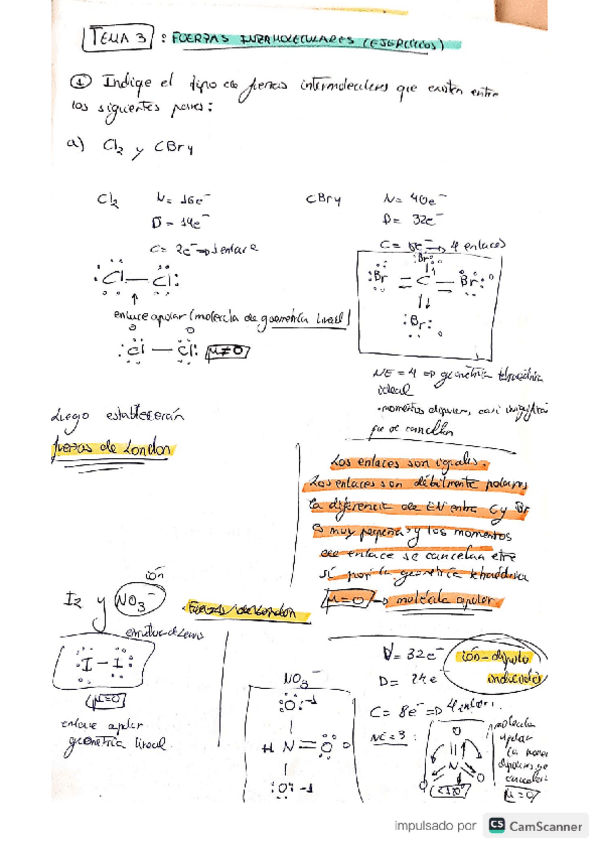 TEMA 3 : FUERZAS INTERMOLECULARES (EJERCICIOS)
① Indique el tipo de fuerzas intermoleculares que existen entre
los siguientes pares:
a) Cl2 y CBr4
Cl2 N= 16e-
D= 14e-
C= 2e- → 1 enlace
:Cl — Cl:
enlace apolar (molécula de geometría lineal)
:Cl — Cl: μ≠0
Luego establecerán
fuerzas de London
CBr4 N= 40e-
D= 32e-
C= 8e- → 4 enlaces
:Br:
:Br — C — Br:
:Br:
NE=4 ⇒ geometría tetraédrica
ideal
que se cancelan
Los enlaces son iguales.
Los enlaces son débilmente polares
la diferencia de EN entre C y Br
es muy pequeña y los momentos
de enlace se cancelan entre
sí por la geometría tetraédrica
μ=0 → molécula apolar
ión
I2 y NO3- Fuerzas de London
estructura de Lewis
:I - I:
μ=0
enlace apolar
geometría lineal
NO3-
:O: -1
N = O
:O: -1
N= 32e-
D= 24e-
C= 8e- ⇒ 4 enlaces
NE=3 :
ión-dipolo
inducido
O
N
O O
120°
molécula
apolar
μ=0
impulsado por CS CamScanner